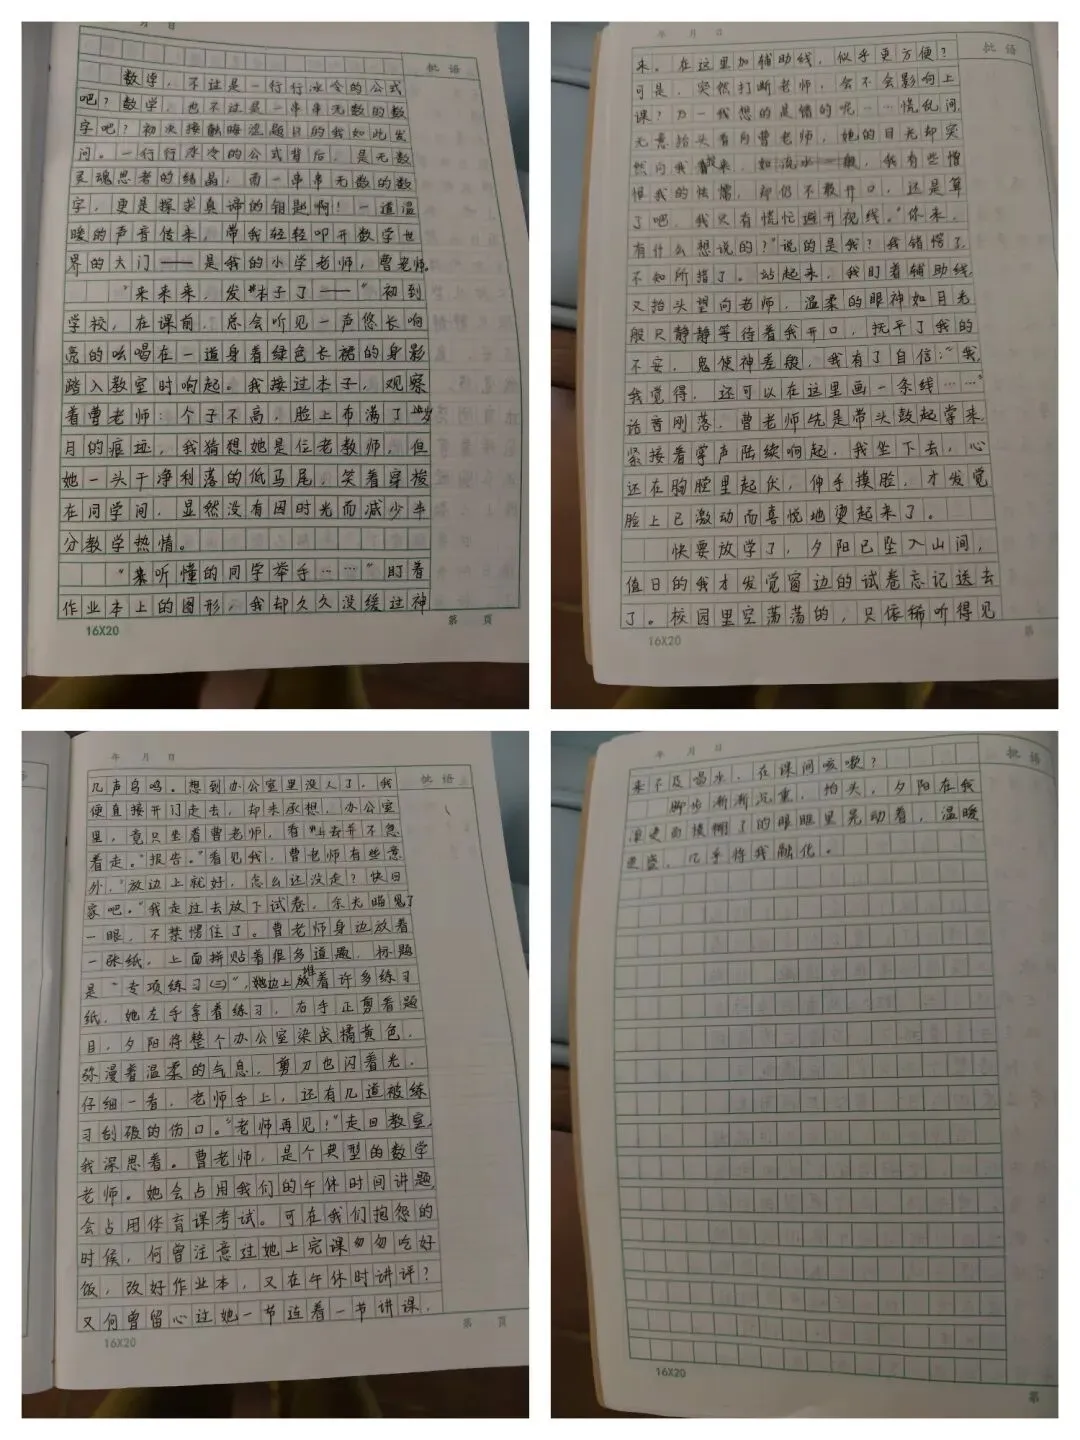 年 月 日
批 语
数学，不过是一行行冰冷的公式
吧？数学，也不过是一串串无数的数
字吧？初次接触晦涩题目的我如此发
问。一行行冰冷的公式背后，是无数
灵魂思考的结晶，而一串串无数的数
字，更是探求真谛的钥匙啊！一道温
暖的声音传来，带我轻轻叩开数学世
界的大门——是我的小学老师，曹老师。
“来来来，发本子了——”初到
学校，在课前，总会听见一声悠长响
亮的吆喝在一道身着绿色长裙的身影
踏入教室时响起。我接过本子，观察
着曹老师：个子不高，脸上布满了岁
月的痕迹，我猜想她是位老教师，但
她一头干净利落的低马尾，笑着穿梭
在同学间，显然没有因时光而减少半
分教学热情。
“来听懂的同学举手……”盯着
作业本上的图形，我却久久没缓过神
16X20
第 页
年 月 日
批 语
来。在这里加辅助线，似乎更方便？
可是，突然打断老师，会不会影向上
课？万一我想的是错的呢……慌乱间，
无意抬头看向曹老师，她的目光却突
然向我投来，如流水一般，我有些憎
恨我的怯懦，却仍不敢开口，还是算
了吧，我只有慌忙避开视线。“你来，
有什么想说的？”说的是我？我错愕了，
不知所措了。站起来，我盯着辅助线，
又抬头望向老师，温柔的眼神如月光
般只静静等待着我开口，抚平了我的
不安，鬼使神差般，我有了自信：“我，
我觉得，还可以在这里画一条线……”
话音刚落，曹老师先是带头鼓起掌来，
紧接着掌声陆续响起，我坐下去，心
还在胸腔里起伏，伸手摸脸，才发觉
脸上已激动而喜悦地烫起来了。
快要放学了，夕阳已坠入山间，
值日的我才发觉窗边的试卷忘记送去
了。校园里空荡荡的，只依稀听得见
16X20
第
年 月 日
批 语
几声鸟鸣。想到办公室里没人了，我
便直接开门走去，却未承想，办公室
里，竟只坐着曹老师，看上去并不急
着走。“报告。”看见我，曹老师有些意
外，“放边上就好，怎么还没走？快回
家吧。”我走过去放下试卷，余光瞄见了
一眼，不禁愣住了。曹老师身边放着
一张纸，上面拼贴着很多道题，标题
是“专项练习(三)”，她边上堆着许多练习
纸，她左手拿着练习，右手正剪着题
目，夕阳将整个办公室染成橘黄色，
弥漫着温柔的气息，剪刀也闪着光，
仔细一看，老师手上，还有几道被练
习刮破的伤口。“老师再见！”走回教室，
我深思着。曹老师，是个典型的数学
老师。她会占用我们的午休时间讲题，
会占用体育课考试。可在我们抱怨的
时候，何曾注意过她上完课匆匆吃好
饭，改好作业本，又在午休时讲评？
又何曾留心过她一节连着一节讲课，
16X20
第 页
年 月 日
批 语
来不及喝水，在课间咳嗽？
脚步渐渐沉重，抬头，夕阳在我
泪更面模糊了的眼眶里晃动着，温暖
更盛，几乎将我融化。
16X20
第